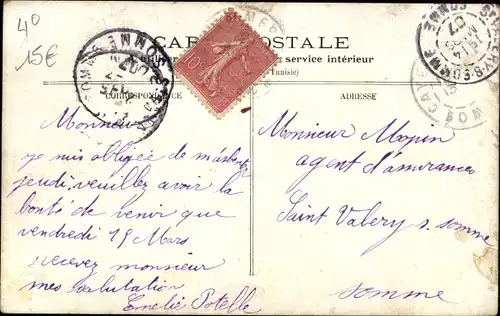 40
15€
CARTE POSTALE
service intérieur
Tunisie)
CORRESPONDANCE
ADRESSE
10
SOMME
Monsieur
je suis obligée de m'absent
jeudi, veuillez avoir la
bonté de venir que
vendredi 15 Mars
recevez monsieur
mes salutation
Emelie Potelle
Monsieur Mopin
agent d'assurances
Saint Valery s. somme
somme